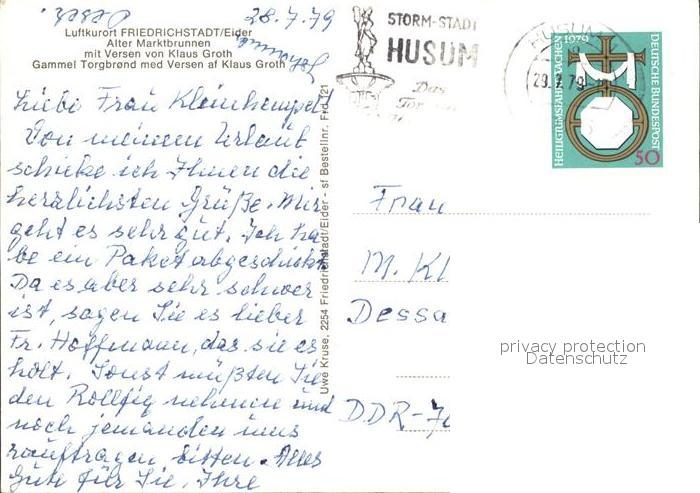 28.7.79
Luftkurort FRIEDRICHSTADT/Eider
Alter Marktbrunnen
mit Versen von Klaus Groth
Gammel Torgbrønd med Versen af Klaus Groth
Liebe Frau Kleinhempel
Von meinem Urlaub
schicke ich Ihnen die
herzlichsten Grüße. Mir
geht es sehr gut. Ich ha-
be ein Paket abgeschickt
Da es aber sehr schwer
ist, sagen Sie es lieber
Fr. Hoffmann, das sie es
holt. Sonst müßten Sie
den Rollfix nehmen und
noch jemanden ums
bitten. Alles
Gute für Sie, Ihre
Uwe Kruse, 2254 Friedrichstadt/Eider - sf Bestellnr. Frd 721
STORM-STADT
HUSUM
Das
HUSUM
29.7.79
HEILIGTUMSFAHRT AACHEN 1979
DEUTSCHE BUNDESPOST
50
Frau
M. Kl
Dessa
DDR-
privacy protection
Datenschutz